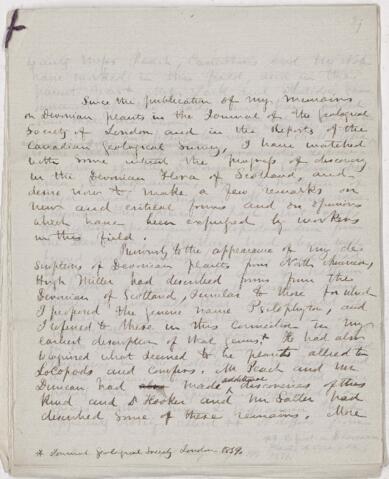 Since the publication of my Memoirs
on Devonian plants in the Journal of the Geological
Society of London and in the Reports of the
Canadian Geological Survey, I have watched
with some interest the progress of discovery
in the Devonian Flora of Scotland, and
desire now to make a few remarks on
new and critical forms and on opinions
which have been expressed by workers
in this field.
Previously to the appearance of my de
scriptions of Devonian plants from North America,
Hugh Miller had described forms from the
Devonian of Scotland, similar to those for which
I proposed the generic name Psilophyton, and
I referred to these in this connection in my
earliest description of that genus.* He had also
recognised what seemed to be plants allied to
Lycopods and conifers. Mr Peach and Mr
Duncan had made additional discoveries of this
kind and Dr Hooker and Mr Salter had
described some of these remains. More
* Journal Geological Society London 1859.